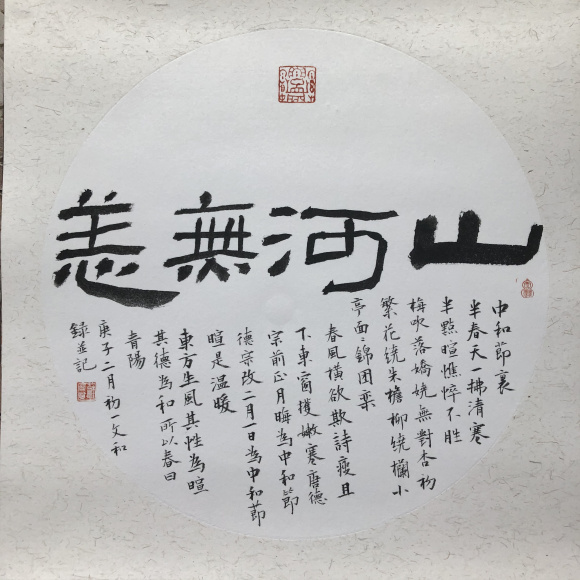 山河無恙
中和節裏
半春天一拂清寒
半點暄憔悴不胜
梅吹落嬌嬈無對杏初
繁花繞朱檐柳繞欄小
亭面面錦團欒
春風橫欲欺詩瘦且
下車窗護嫩寒唐德
宗前正月晦為中和節
德宗改二月一日為中和節
暄是溫暖
東方生風其性為暄
其德為和所以春曰
青陽
庚子二月初一文和
錄並記